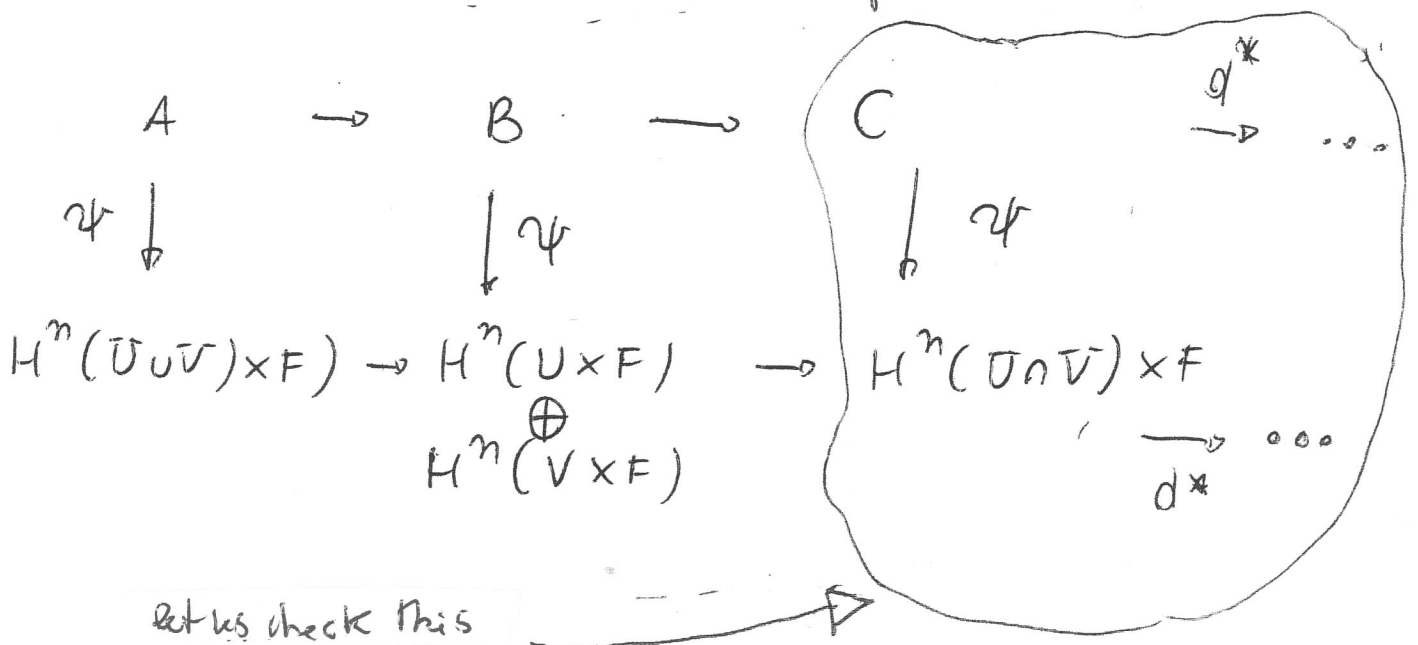 A → B → C d* → ...
ψ ↓ ↓ ψ ↓ ψ
Hⁿ(U∪V)×F) → Hⁿ(U×F) → Hⁿ(U∩V)×F
⊕
Hⁿ(V×F) → ...
d*
let us check this